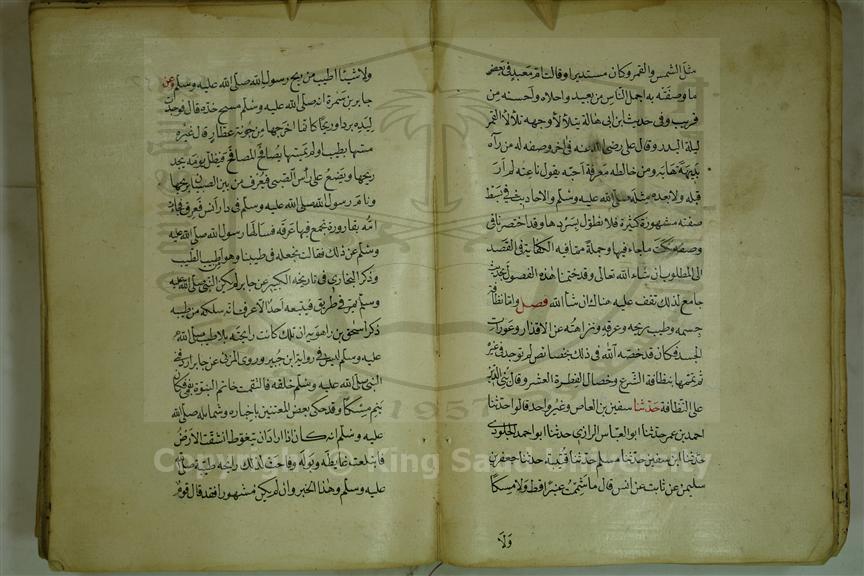 مثل الشمس والقمر وكان مستديرا وقالت ام معبد في بعض
ما وصفته به اجمل الناس من بعيد واحلاه واحسنه من
قريب وفي حديث ابن ابي هالة يتلألأ وجهه تلألأ القمر
ليلة البدر وقال علي رضى الله عنه في اخر وصفه له من رآه
بديهة هابه ومن خالطه معرفة احبه يقول ناعته لم ار
قبله ولا بعده مثله صلى الله عليه وسلم والاحاديث في بسط
صفته مشهورة كثيرة فلا نطول بسردها وقد اختصرنا في
وصفه نكت ما جاء فيها وجملة مما فيه الكفاية في القصد
الى المطلوب ان شاء الله تعالى وقد ختمنا هذه الفصول بحديث
جامع لذلك تقف عليه هناك ان شاء الله فصل واما نظافة
جسمه وطيب ريحه وعرقه ونزاهته عن الاقذار وعورات
الجسد فكان قد خصه الله في ذلك بخصائص لم توجد في غيره
ثم تممها بنظافة الشرع وخصال الفطرة العشر وقال بني الدين
على النظافة حدثنا سفين بن العاص وغير واحد قالوا حدثنا
احمد بن عمر حدثنا ابو العباس الرازي حدثنا ابو احمد الجلودي
حدثنا ابن سفين حدثنا مسلم حدثنا قتيبة حدثنا جعفر بن
سليمن عن ثابت عن انس قال ما شممت عنبرا قط ولا مسكا
ولا
ولا شيئا اطيب من ريح رسول الله صلى الله عليه وسلم وعن
جابر بن سمرة انه صلى الله عليه وسلم مسح خده قال فوجدت
ليده بردا وريحا كانما اخرجها من جونة عطار قال غيره
مسها بطيب او لم يمسها يصافح المصافح فيظل يومه يجد
ريحها ويضع على رأس الصبي فيعرف من بين الصبيان بريحها
ونام رسول الله صلى الله عليه وسلم في دار انس فعرق فجاءت
امه بقارورة تجمع فيها عرقه فسألها رسول الله صلى الله عليه
وسلم عن ذلك فقالت نجعله في طيبنا وهو اطيب الطيب
وذكر البخاري في تاريخه الكبير عن جابر لم يكن النبي صلى الله عليه
وسلم يمر في طريق فيتبعه احد الا عرف انه سلكه من طيبه
ذكر اسحق بن راهويه ان تلك كانت رائحته بلا طيب صلى الله
عليه وسلم وروى المزني عن جابر اردفني
النبي صلى الله عليه وسلم خلفه فالتقمت خاتم النبوة بفي فكان
ينم مسكا وقد حكى بعض المعتنين باخباره وشمايله صلى الله
عليه وسلم انه كان اذا اراد ان يتغوط انشقت الارض
فابتلعت غايطه وبوله وفاحت لذلك رائحة طيبة صلى الله
عليه وسلم وهذا الخبر وان لم يكن مشهورا فقد قال قوم
1957
Copyright © King Saud University